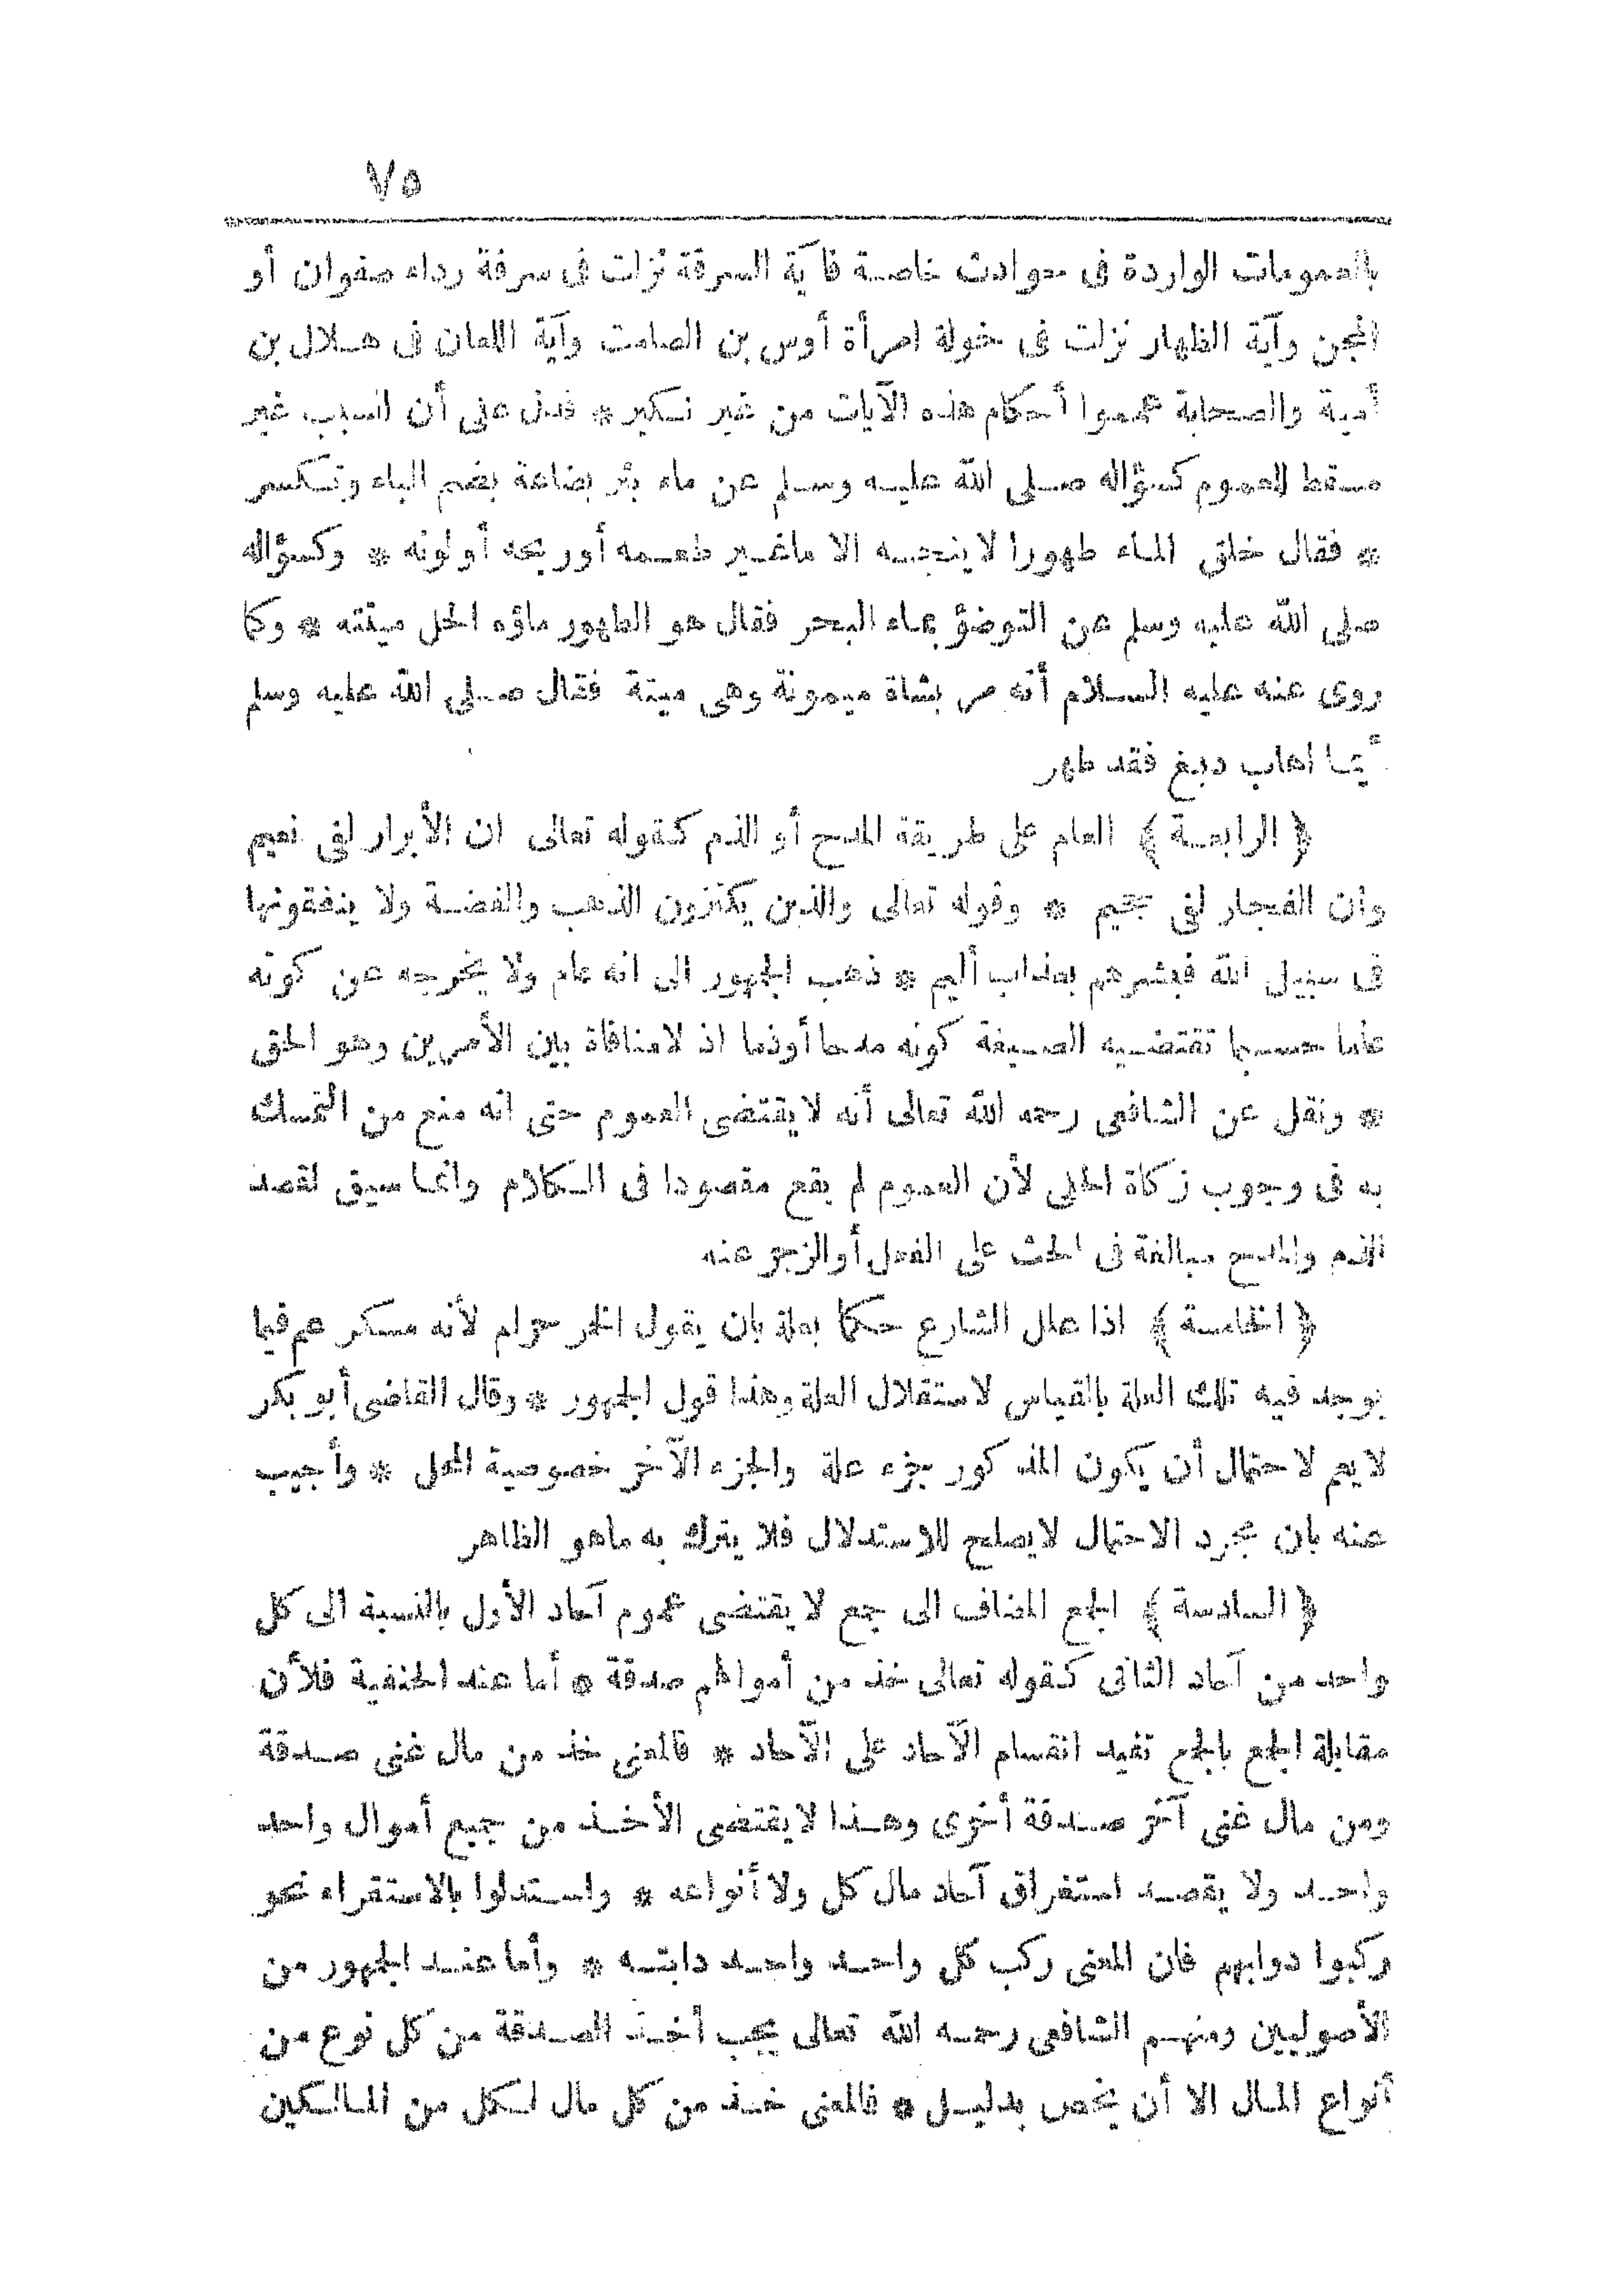 ٧٥
بالعمومات الواردة فى حوادث خاصة فآية السرقة نزلت فى سرقة رداء صفوان أو
المجن وآية الظهار نزلت فى خولة امرأة أوس بن الصامت وآية اللعان فى هلال بن
أمية والصحابة عمموا أحكام هذه الآيات من غير نكير * فدل على أن السبب غير
مسقط للعموم كسؤاله صلى الله عليه وسلم عن ماء بئر بضاعة بضم الباء وتكسر
* فقال خلق الماء طهورا لا ينجسه الا ماغير طعمه أو ريحه أو لونه * وكسؤاله
صلى الله عليه وسلم عن التوضؤ بماء البحر فقال هو الطهور ماؤه الحل ميتته * وكما
روى عنه عليه السلام أنه مر بشاة ميمونة وهى ميتة فقال صلى الله عليه وسلم
أيما اهاب دبغ فقد طهر
﴿ الرابعة ﴾ العام على طريقة المدح أو الذم كقوله تعالى ان الأبرار لفى نعيم
وان الفجار لفى جحيم * وقوله تعالى والذين يكنزون الذهب والفضة ولا ينفقونها
فى سبيل الله فبشرهم بعذاب أليم * ذهب الجمهور الى انه عام ولا يخرجه عن كونه
عاما حسبما تقتضيه الصيغة كونه مدحا أوذما اذ لا منافاة بين الأمرين وهو الحق
* ونقل عن الشافعى رحمه الله تعالى أنه لا يقتضى العموم حتى انه منع من التمسك
به فى وجوب زكاة الحلى لأن العموم لم يقع مقصودا فى الكلام وانما سيق لقصد
الذم والمدح مبالغة فى الحث على الفعل أو الزجر عنه
﴿ الخامسة ﴾ اذا علل الشارع حكما بعلة بان يقول الخمر حرام لأنه مسكر عم فيما
يوجد فيه تلك العلة بالقياس لاستقلال العلة وهذا قول الجمهور * وقال القاضى أبو بكر
لا يعم لاحتمال أن يكون المذكور جزء علة والجزء الآخر خصوصية المحل * وأجيب
عنه بان مجرد الاحتمال لا يصلح للاستدلال فلا يترك به ماهو الظاهر
﴿ السادسة ﴾ الجمع المضاف الى جمع لا يقتضى عموم آحاد الأول بالنسبة الى كل
واحد من آحاد الثانى كقوله تعالى خذ من أموالهم صدقة * أما عند الحنفية فلأن
مقابلة الجمع بالجمع تفيد انقسام الآحاد على الآحاد * فالمعنى خذ من مال غنى صدقة
ومن مال غنى آخر صدقة أخرى وهذا لا يقتضى الأخذ من جميع أموال واحد
واحد ولا يقصد استغراق آحاد مال كل ولا أنواعه * واستدلوا بالاستقراء نحو
ركبوا دوابهم فان المعنى ركب كل واحد واحد دابته * وأما عند الجمهور من
الأصوليين ومنهم الشافعى رحمه الله تعالى يجب أخذ الصدقة من كل نوع من
أنواع المال الا أن يخص بدليل * فالمعنى خذ من كل مال لكل من المالكين